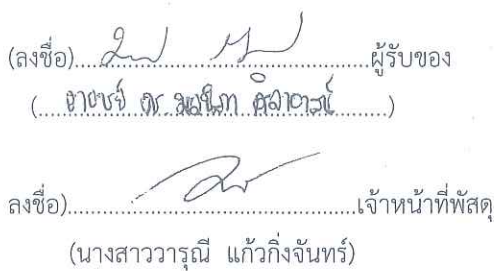 (ลงชื่อ)..............................ผู้รับของ
(อาจารย์ ดร. ..............................)
ลงชื่อ)..............................เจ้าหน้าที่พัสดุ
(นางสาววารุณี แก้วกิ่งจันทร์)